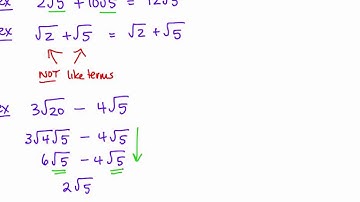 ex 2√5 + 10√5 = 12√5
ex √2 + √5 = √2 + √5
NOT like terms
ex 3√20 - 4√5
3√4√5 - 4√5
6√5 - 4√5
2√5